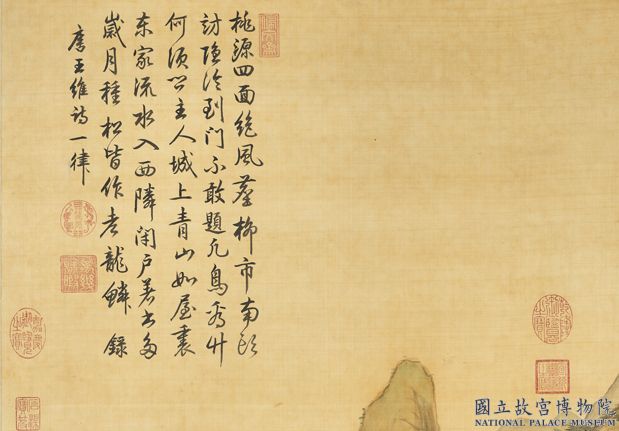 桃源四面絶風塵柳市南頭
訪隐淪到门不敢題凡鳥看竹
何須问主人城上青山如屋裏
东家流水入西隣閉户著书多
嵗月種松皆作老龍鱗 録
唐王維詩一律
國立故宮博物院
NATIONAL PALACE MUSEUM